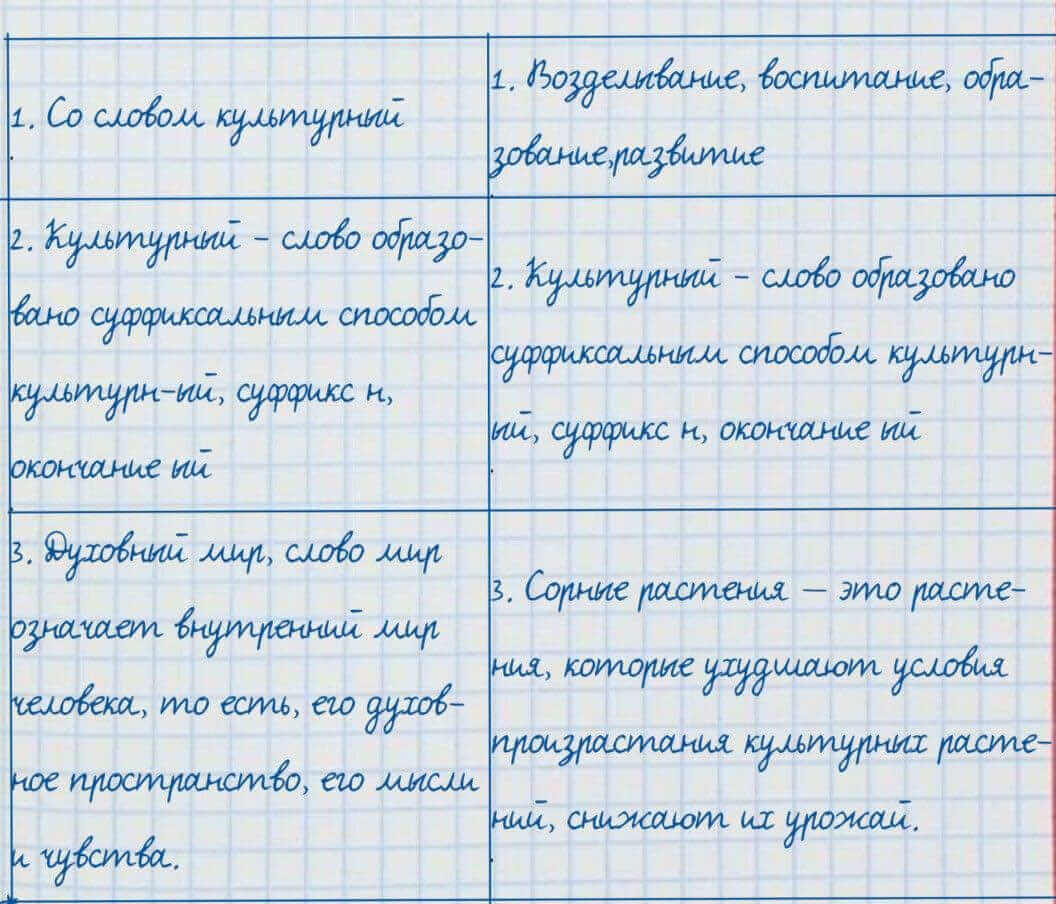 1. Со словом культурный
1. Возделывание, воспитание, обра-
зование,развитие
2. Культурный - слово образо-
вано суффиксальным способом
культурн-ый, суффикс н,
окончание ый
2. Культурный - слово образовано
суффиксальным способом культурн-
ый, суффикс н, окончание ый
3. Духовный мир, слово мир
означает внутренний мир
человека, то есть, его духов-
ное пространство, его мысли
и чувства.
3. Сорные растения — это расте-
ния, которые ухудшают условия
произрастания культурных расте-
ний, снижают их урожай.